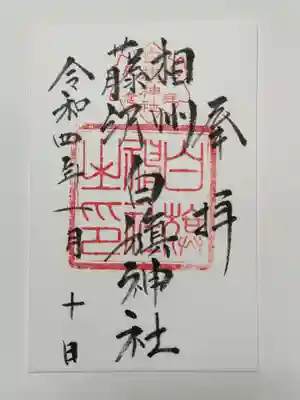 奉拝
相州
藤沢
白旗神社
令和四年十一月
十日